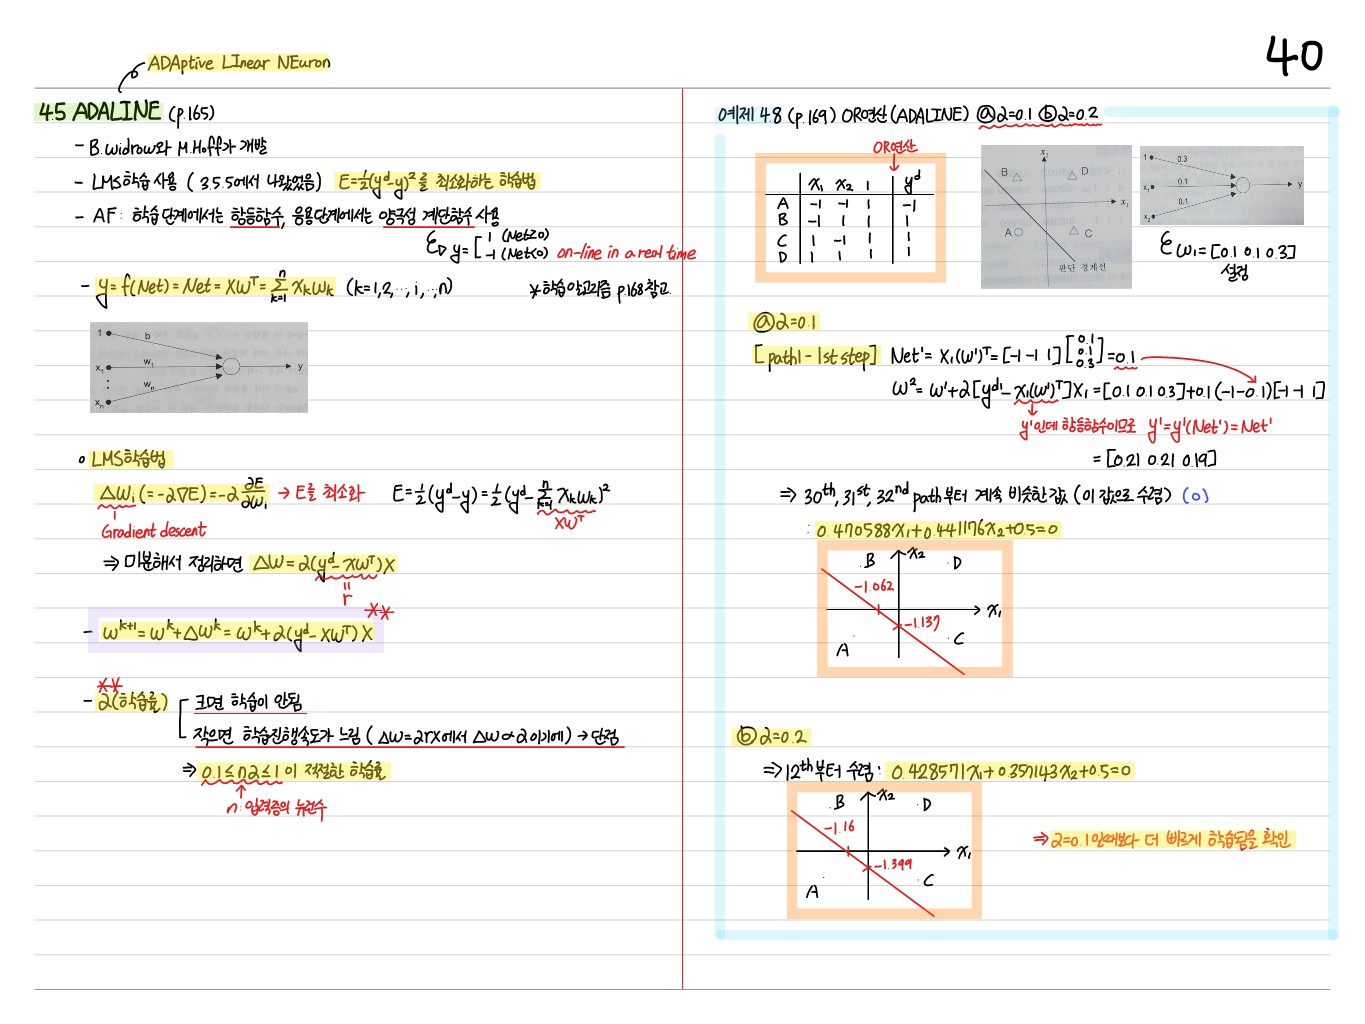 40
ADAptive LInear NEuron
4.5 ADALINE (p.165)
- B.widrow와 M.Hoff가 개발
- LMS학습 사용 ( 3.5.5에서 나왔었음) E=½(y^d-y)²를 최소화하는 학습법
- AF: 학습단계에서는 항등함수, 응용단계에서는 양극성 계단함수 사용
y=[ 1 (Net≥0)
-1 (Net<0) on-line in a real time
- y=f(Net)=Net=XW^T=Σ_{k=1}^{n} x_k w_k (k=1,2,…,i,…,n) * 학습 알고리즘 p.168 참고
1 b
x₁ w₁ y
⋮ wₙ
xₙ
o LMS학습법
△W_i (=-α∇E)=-α ∂E/∂W_i → E를 최소화 E=½(y^d-y)=½(y^d-Σ_{k=1}^{n} x_k w_k)²
Gradient descent XW^T
⇒ 미분해서 정리하면 △W=α(y^d-XW^T)X
=
r
**
- W^{k+1}=W^k+△W^k=W^k+α(y^d-XW^T)X
**
- α(학습률) 크면 학습이 안됨
작으면 학습진행속도가 느림 (△W=αrX에서 △W∝α이기에) → 단점
⇒ 0.1≤nα≤1 이 적절한 학습률
n:입력층의 뉴런수
예제 4.8 (p.169) OR연산(ADALINE) ⓐα=0.1 ⓑα=0.2
OR연산
x₁ x₂ 1 y^d
A -1 -1 1 -1
B -1 1 1 1
C 1 -1 1 1
D 1 1 1 1
x₂
B D
x₁
A C
판단 경계선
1 0.3
x₁ 0.1 y
x₂ 0.1
W₁=[0.1 0.1 0.3]
설정
ⓐα=0.1
[path1-1st step] Net¹=X₁(W¹)^T=[-1 -1 1][0.1 0.1 0.3]=0.1
W²=W¹+α[y^{d1}-X₁(W¹)^T]X₁=[0.1 0.1 0.3]+0.1(-1-0.1)[-1 -1 1]
y¹인데 항등함수이므로 y¹=y¹(Net¹)=Net¹
=[0.21 0.21 0.19]
⇒ 30th, 31st, 32nd path부터 계속 비슷한 값 (이 값으로 수렴) (0)
: 0.470588x₁+0.441176x₂+0.5=0
B x₂ D
-1.062
x₁
-1.137
A C
ⓑα=0.2
⇒12th부터 수렴: 0.428571x₁+0.357143x₂+0.5=0
B x₂ D
-1.16
x₁
-1.399
A C
⇒α=0.1일때보다 더 빠르게 학습됨을 확인